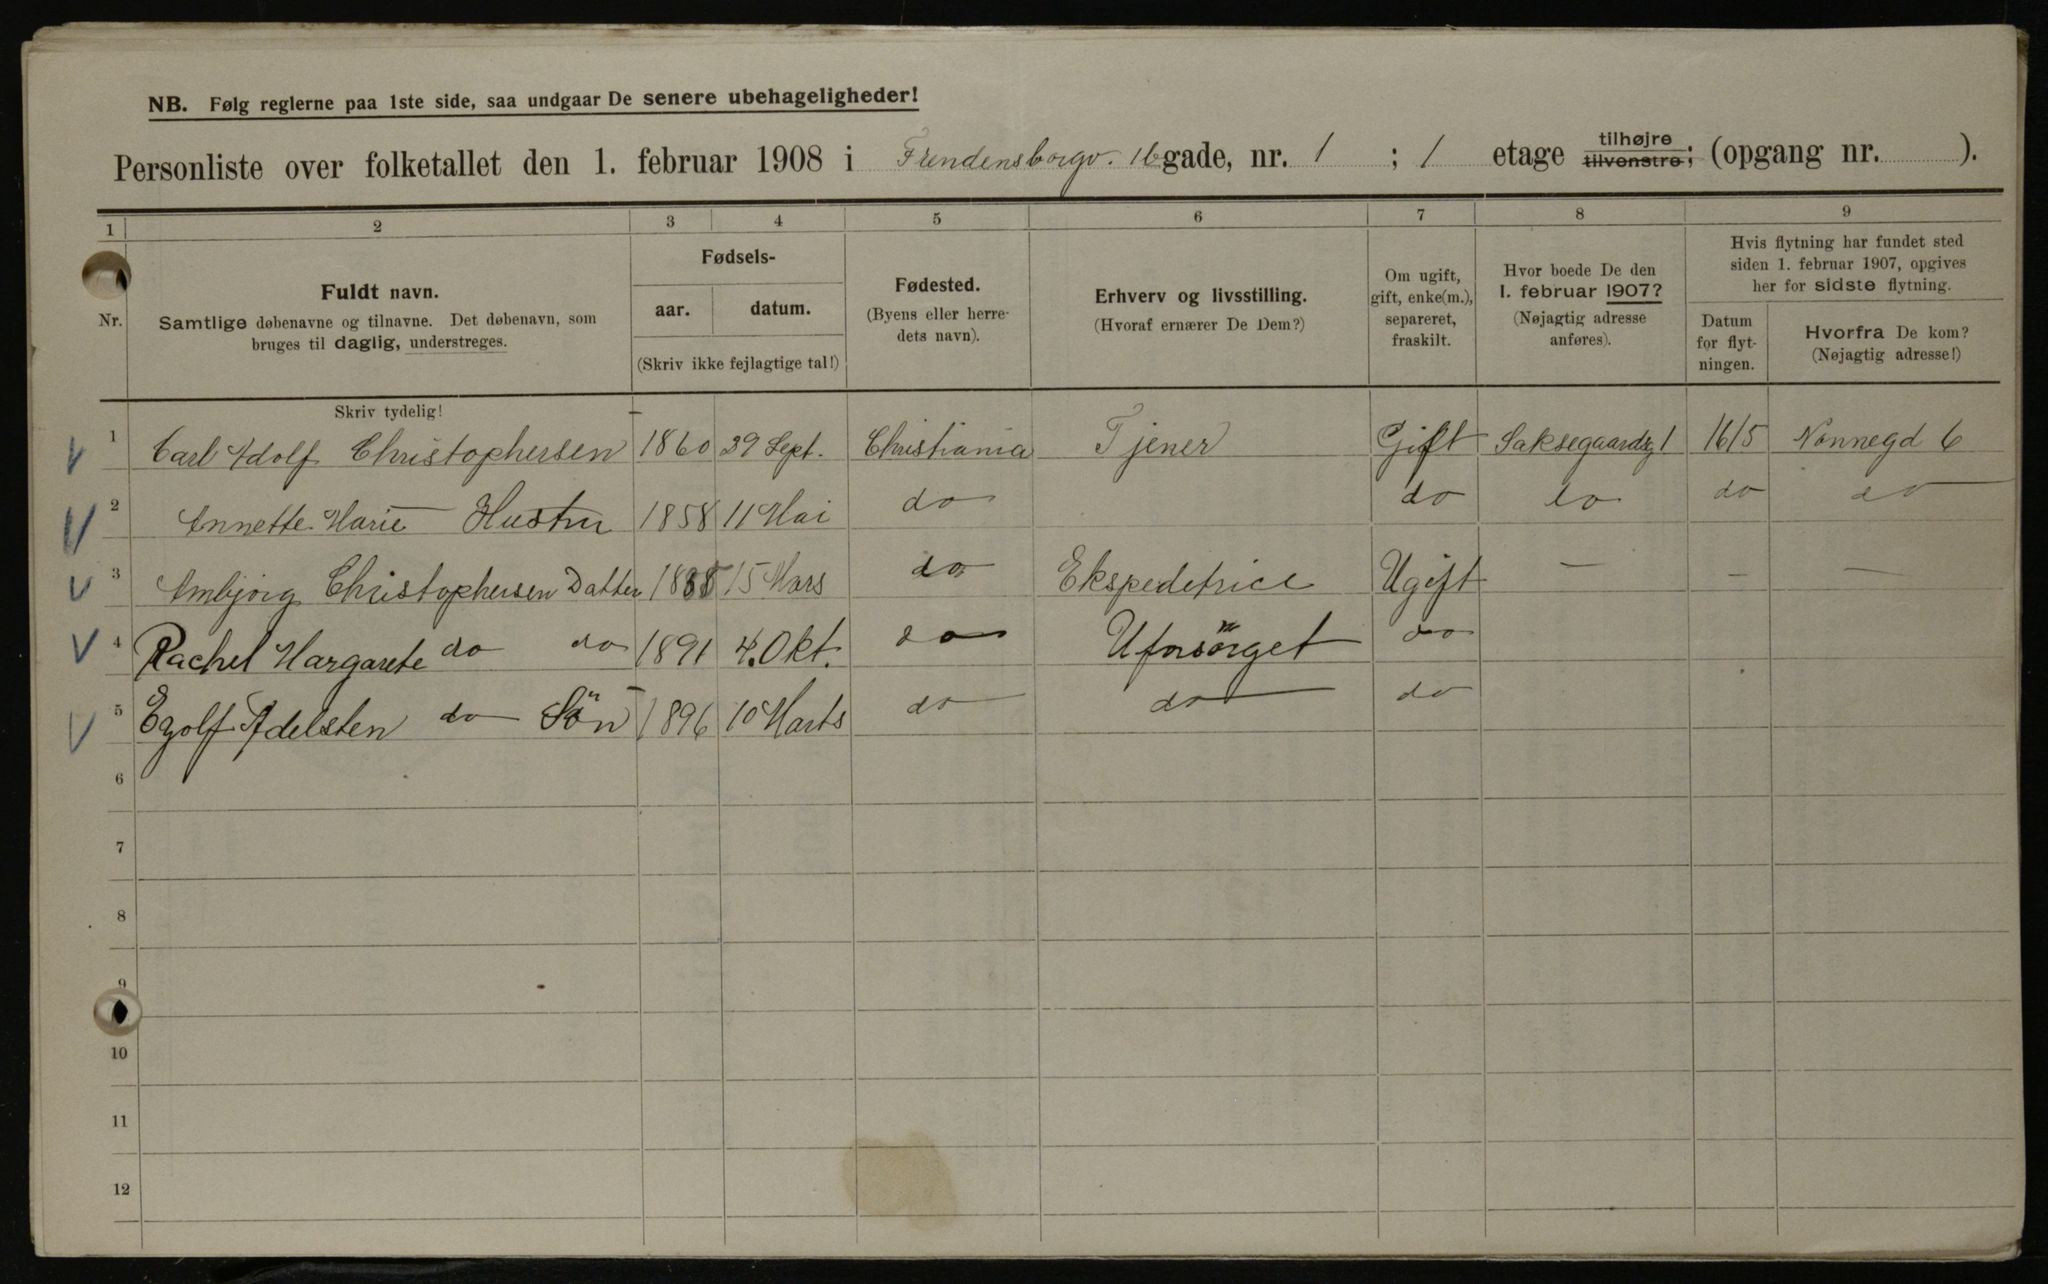 NB. Følg reglerne paa 1ste side, saa undgaar De senere ubehageligheder!
Personliste over folketallet den 1. februar 1908 i Frendensborgv. 16 gade, nr. 1 ; 1 etage tilhøjre tilvenstre; (opgang nr. ).
1 2 3 4 5 6 7 8 9
Nr.
Fuldt navn.
Samtlige døbenavne og tilnavne. Det døbenavn, som
bruges til daglig, understreges.
Skriv tydelig!
Fødsels-
aar. datum.
(Skriv ikke fejlagtige tal!)
Fødested.
(Byens eller herre-
dets navn).
Erhverv og livsstilling.
(Hvoraf ernærer De Dem?)
Om ugift,
gift, enke(m.),
separeret,
fraskilt.
Hvor boede De den
1. februar 1907?
(Nøjagtig adresse
anføres).
Hvis flytning har fundet sted
siden 1. februar 1907, opgives
her for sidste flytning.
Datum
for flyt-
ningen.
Hvorfra De kom?
(Nøjagtig adresse!)
1 Carl Adolf Christophersen 1860 29 Sept. Christiania Tjener Gift Saksegaardsg 1 16/5 Nonnegd 6
2 Annette Marie Hustru 1858 11 Mai do do do do do
3 Ambjörg Christophersen Datter 1888 15 Mars do Ekspedetrice Ugift — — —
4 Rachel Margarete do do 1891 4. Okt. do Uforsörget do
5 Egolf Adelsten do Sön 1896 10 Marts do do do
6
7
8
9
10
11
12